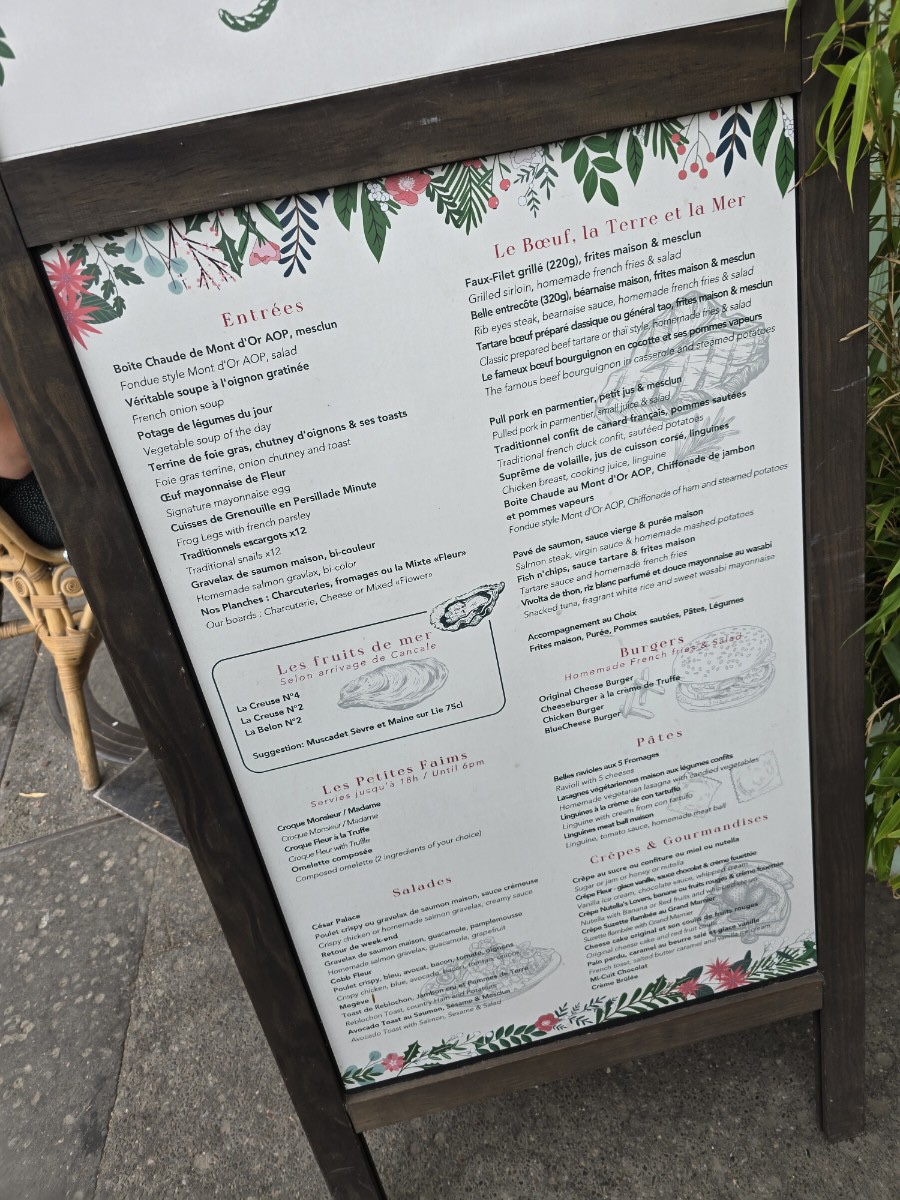 Entrées
Boite Chaude de Mont d'Or AOP, mesclun
Fondue style Mont d'Or AOP, salad
Véritable soupe à l'oignon gratinée
French onion soup
Potage de légumes du jour
Vegetable soup of the day
Terrine de foie gras, chutney d'oignons & ses toasts
Foie gras terrine, onion chutney and toast
Œuf mayonnaise de Fleur
Signature mayonnaise egg
Cuisses de Grenouille en Persillade Minute
Frog Legs with french parsley
Traditionnels escargots x12
Traditional snails x12
Gravelax de saumon maison, bi-couleur
Homemade salmon gravlax, bi color
Nos Planches : Charcuteries, fromages ou la Mixte «Fleur»
Our boards : Charcuterie, Cheese or Mixed «Flower»
Les fruits de mer
Selon arrivage de Cancale
La Creuse N°4
La Creuse N°2
La Belon N°2
Suggestion: Muscadet Sèvre et Maine sur Lie 75cl
Les Petites Faims
Servies jusqu'à 18h / Until 6pm
Croque Monsieur / Madame
Croque Monsieur / Madame
Croque Fleur à la Truffe
Croque Fleur with Truffle
Omelette composée
Composed omelette (2 ingredients of your choice)
Salades
César Palace
Poulet crispy ou gravelax de saumon maison, sauce crémeuse
Crispy chicken or homemade salmon gravelas, creamy sauce
Retour de week-end
Gravelax de saumon maison, guacamole, pamplemousse
Homemade salmon gravelas, guacamole, grapefruit
Cobb Fleur
Poulet crispy, bleu, avocat, bacon, tomate, oignons
Crispy chicken, blue, avocado, bacon, tomato, onions
Megève
Toast de Reblochon, Jambon cru et Pommes de Terre
Reblochon Toast, country Ham and Potatoes
Avocado Toast au Saumon, Sésame & Mesclun
Avocado Toast with Salmon, Sesame & Salad
Le Bœuf, la Terre et la Mer
Faux-Filet grillé (220g), frites maison & mesclun
Grilled sirloin, homemade french fries & salad
Belle entrecôte (320g), béarnaise maison, frites maison & mesclun
Rib eyes steak, bearnaise sauce, homemade french fries & salad
Tartare bœuf préparé classique ou général tao, frites maison & mesclun
Classic prepared beef tartare or thaï style, homemade fries & salad
Le fameux bœuf bourguignon en cocotte et ses pommes vapeurs
The famous beef bourguignon in casserole and steamed potatoes
Pull pork en parmentier, petit jus & mesclun
Pulled pork in parmentier, small juice & salad
Traditionnel confit de canard français, pommes sautées
Traditional french duck confit, sautéed potatoes
Suprême de volaille, jus de cuisson corsé, linguines
Chicken breast, cooking juice, linguine
Boite Chaude au Mont d'Or AOP, Chiffonade de jambon
et pommes vapeurs
Fondue style Mont d'Or AOP, Chiffonade of ham and steamed potatoes
Pavé de saumon, sauce vierge & purée maison
Salmon steak, virgin sauce & homemade mashed potatoes
Fish n'chips, sauce tartare & frites maison
Tartare sauce and homemade french fries
Vivolta de thon, riz blanc parfumé et douce mayonnaise au wasabi
Snacked tuna, fragrant white rice and sweet wasabi mayonnaise
Accompagnement au Choix
Frites maison, Purée, Pommes sautées, Pâtes, Légumes
Burgers
Homemade French fries & salad
Original Cheese Burger
Cheeseburger à la crème de Truffe
Chicken Burger
BlueCheese Burger
Pâtes
Belles ravioles aux 5 Fromages
Ravioli with 5 cheeses
Lasagnes végétariennes maison aux légumes confits
Homemade vegetarian lasagna with candied vegetables
Linguines à la crème de con tartufio
Linguine with cream from con tartufo
Linguines meat ball maison
Linguine, tomato sauce, homemade meat ball
Crêpes & Gourmandises
Crêpe au sucre ou confiture ou miel ou nutella
Sugar or jam or honey or nutella
Crêpe Fleur - glace vanille, sauce chocolat & crème fouettée
Vanilla ice cream, chocolate sauce, whipped cream
Crêpe Nutella's Lovers, banane ou fruits rouges & crème fouettée
Nutella with Banana or Red fruits and
Crêpe Suzette flambée au Grand Marnier
Suzette flambée with Grand Marnier
Cheese cake original et son coulis de fruits rouges
Original cheese cake and red fruit coulis
Pain perdu, caramel au beurre salé et glace vanille
French toast, salted butter caramel and vanilla ice cream
Mi-Cuit Chocolat
Crème Brûlée